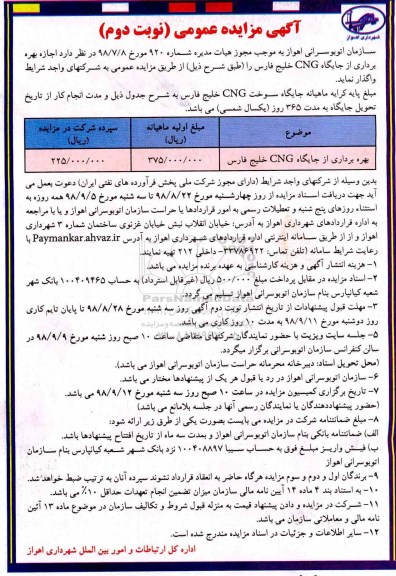 آگهی مزایده عمومی (نوبت دوم)
شهرداری اهواز
سازمان اتوبوسرانی اهواز به موجب مجوز هیات مدیره شماره ۹۲۰ مورخ ۹۸/۷/۸ در نظر دارد اجازه بهره
برداری از جایگاه CNG خلیج فارس را (طبق شرح ذیل) از طریق مزایده عمومی به شرکتهای واجد شرایط
واگذار نماید.
مبلغ پایه کرایه ماهیانه جایگاه سوخت CNG خلیج فارس به شرح جدول ذیل و مدت انجام کار از تاریخ
تحویل جایگاه به مدت ۳۶۵ روز (یکسال شمسی) می باشد.
موضوع مبلغ اولیه ماهیانه (ریال) سپرده شرکت در مزایده (ریال)
بهره برداری از جایگاه CNG خلیج فارس ۳۷۵/۰۰۰/۰۰۰ ۲۲۵/۰۰۰/۰۰۰
بدین وسیله از شرکتهای واجد شرایط (دارای مجوز شرکت ملی پخش فرآورده های نفتی ایران) دعوت بعمل می
آید جهت دریافت اسناد مزایده از روز چهارشنبه مورخ ۹۸/۸/۲۲ تا سه شنبه مورخ ۹۸/۹/۵ همه روزه به
استثناء روزهای پنج شنبه و تعطیلات رسمی به امور قراردادها یا حراست سازمان اتوبوسرانی اهواز و یا با مراجعه
به اداره قراردادهای شهرداری اهواز به آدرس: خیابان انقلاب نبش خیابان غزنوی ساختمان شماره ۳ شهرداری
اهواز و از طریق سامانه اینترنتی اداره قراردادهای شهرداری اهواز به آدرس Paymankar.ahvaz.ir با
رعایت شرایط سامانه (تلفن تماس: ۳۳۷۸۶۹۲۲- داخلی ۲۱۲ تهیه نمایند.
۱- هزینه انتشار آگهی و هزینه کارشناسی به عهده برنده مزایده می باشد.
۲- اسناد مزایده در مقابل پرداخت مبلغ ۵۰۰/۰۰۰ ریال (غیرقابل استرداد) به حساب ۱۰۰۴۰۹۴۶۵ بانک شهر
شعبه کیانپارس بنام سازمان اتوبوسرانی اهواز تسلیم می گردد.
۳- مهلت قبول پیشنهادات از تاریخ انتشار نوبت دوم آگهی روز سه شنبه مورخ ۹۸/۸/۲۸ تا پایان تایم کاری
روز دوشنبه مورخ ۹۸/۹/۱۱ به مدت ۱۰ روز کاری می باشد.
۵- جلسه سایت ویزیت با حضور نمایندگان شرکتهای متقاضی ساعت ۱۰ صبح روز شنبه مورخ ۹۸/۹/۹ در
سالن کنفرانس سازمان اتوبوسرانی برگزار میگردد.
(محل تحویل اسناد: دبیرخانه محرمانه حراست سازمان اتوبوسرانی اهواز می باشد).
۶- سازمان اتوبوسرانی اهواز در رد یا قبول هر یک از پیشنهادها مختار می باشد.
۷- تاریخ برگزاری کمیسیون مزایده در ساعت ۱۰ صبح روز سه شنبه مورخ ۹۸/۹/۱۲ می باشد.
(حضور پیشنهاددهندگان یا نمایندگان رسمی آنها در جلسه بلامانع می باشد)
۸- مبلغ ضمانتنامه شرکت در مزایده می بایست بصورت یکی از طرق زیر ارائه شود:
الف) ضمانتنامه بانکی بنام سازمان اتوبوسرانی اهواز و بمدت سه ماه از تاریخ افتتاح پیشنهادها باشد.
ب) فیش واریز مبلغ فوق به حساب سیبا ۱۰۰۴۰۸۸۹۷ نزد بانک شهر شعبه کیانپارس بنام سازمان
اتوبوسرانی اهواز
۹- برندگان اول و دوم و سوم مزایده هرگاه حاضر به انعقاد قرارداد نشوند سپرده آنان به ترتیب ضبط خواهد شد.
۱۰- به استناد بند ۴ ماده ۱۴ آیین نامه مالی سازمان میزان تضمین انجام تعهدات حداقل ۱۰٪ می باشد.
۱۱- شرکت در مزایده و دادن پیشنهاد قیمت به منزله قبول شروط و تکالیف سازمان در موضوع ماده ۱۳ آئین
نامه مالی و معاملاتی سازمان می باشد.
۱۲- سایر اطلاعات و جزئیات در اسناد مزایده مندرج شده است.
اداره کل ارتباطات و امور بین الملل شهرداری اهواز